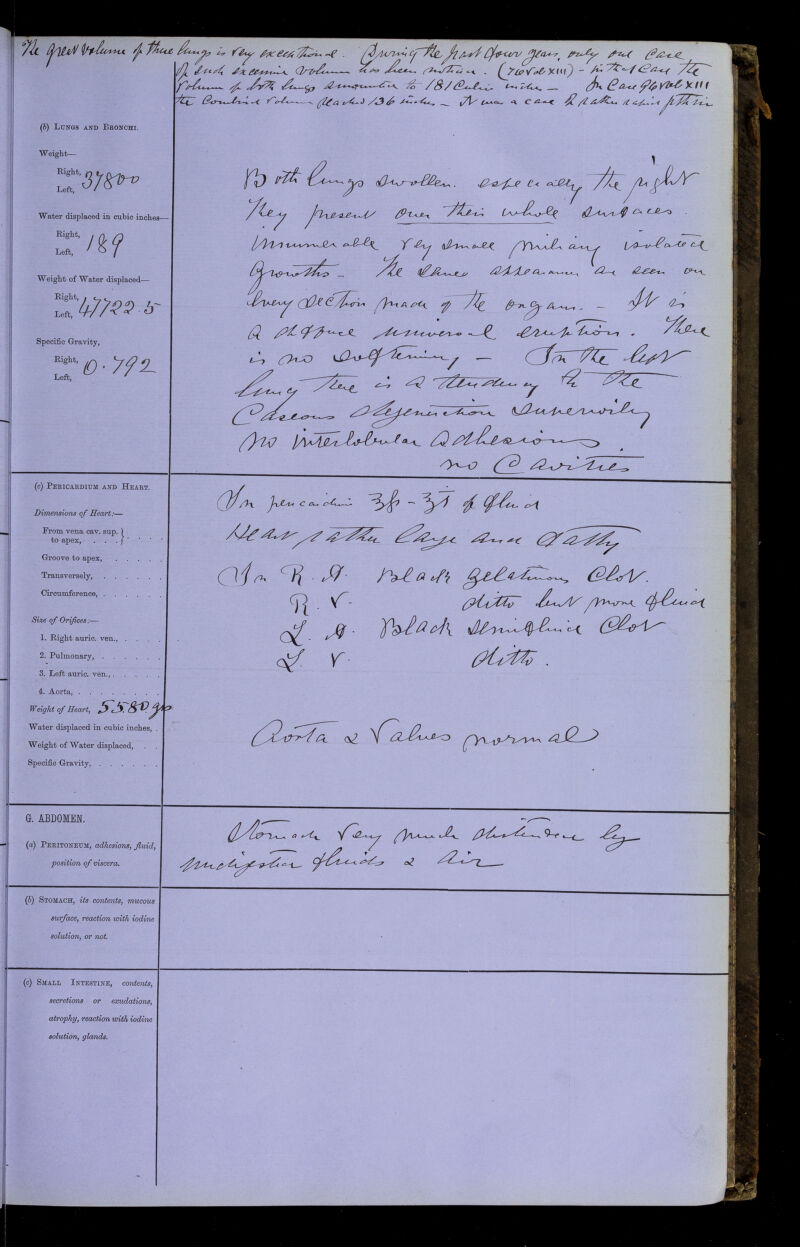 The great volume of these lungs is very exceptional. During the past four years, only one case
of such excessive volume has been noticed. (76 Vol XIII) - in that case the
volume of both lungs amounted to 181 cubic inches - In Case 96 Vol XIII
the combined volume reached 136 inches - It was a case of rather rapid
(b) Lungs and Bronchi.
Weight—
Right,
Left,
37800
Water displaced in cubic inches—
Right,
Left,
189
Weight of Water displaced—
Right,
Left,
47722.5
Specific Gravity,
Right,
Left,
0.792
Both lungs swollen. especially the right
They present over their whole surfaces
innumerable very small miliary isolated
growths - The same appearances are seen on
every section made of the organs. - It is
a diffuse universal eruption. There
is no softening - In the left
lung there is a tendency to the
Caseous degeneration
no interlobular adhesions
no Cavities
(c) Pericardium and Heart.
Dimensions of Heart:—
From vena cav. sup. to apex,
Groove to apex,
Transversely,
Circumference,
Size of Orifices:—
1. Right auric. ven.,
2. Pulmonary,
3. Left auric. ven.,
4. Aorta,
Weight of Heart, 5580 grs
Water displaced in cubic inches,
Weight of Water displaced,
Specific Gravity,
In pericardium ℥ß - ℥i of fluid
Heart rather large and fatty
In R. A. black gelatinous Clot.
R. V. ditto but more fluid
L. A. Black semifluid Clot
L. V. ditto.
Aorta & Valves normal
G. ABDOMEN.
(a) Peritoneum, adhesions, fluid,
position of viscera.
Stomach very much distended by
undigested fluids & air
(b) Stomach, its contents, mucous
surface, reaction with iodine
solution, or not.
(c) Small Intestine, contents,
secretions or exudations,
atrophy, reaction with iodine
solution, glands.